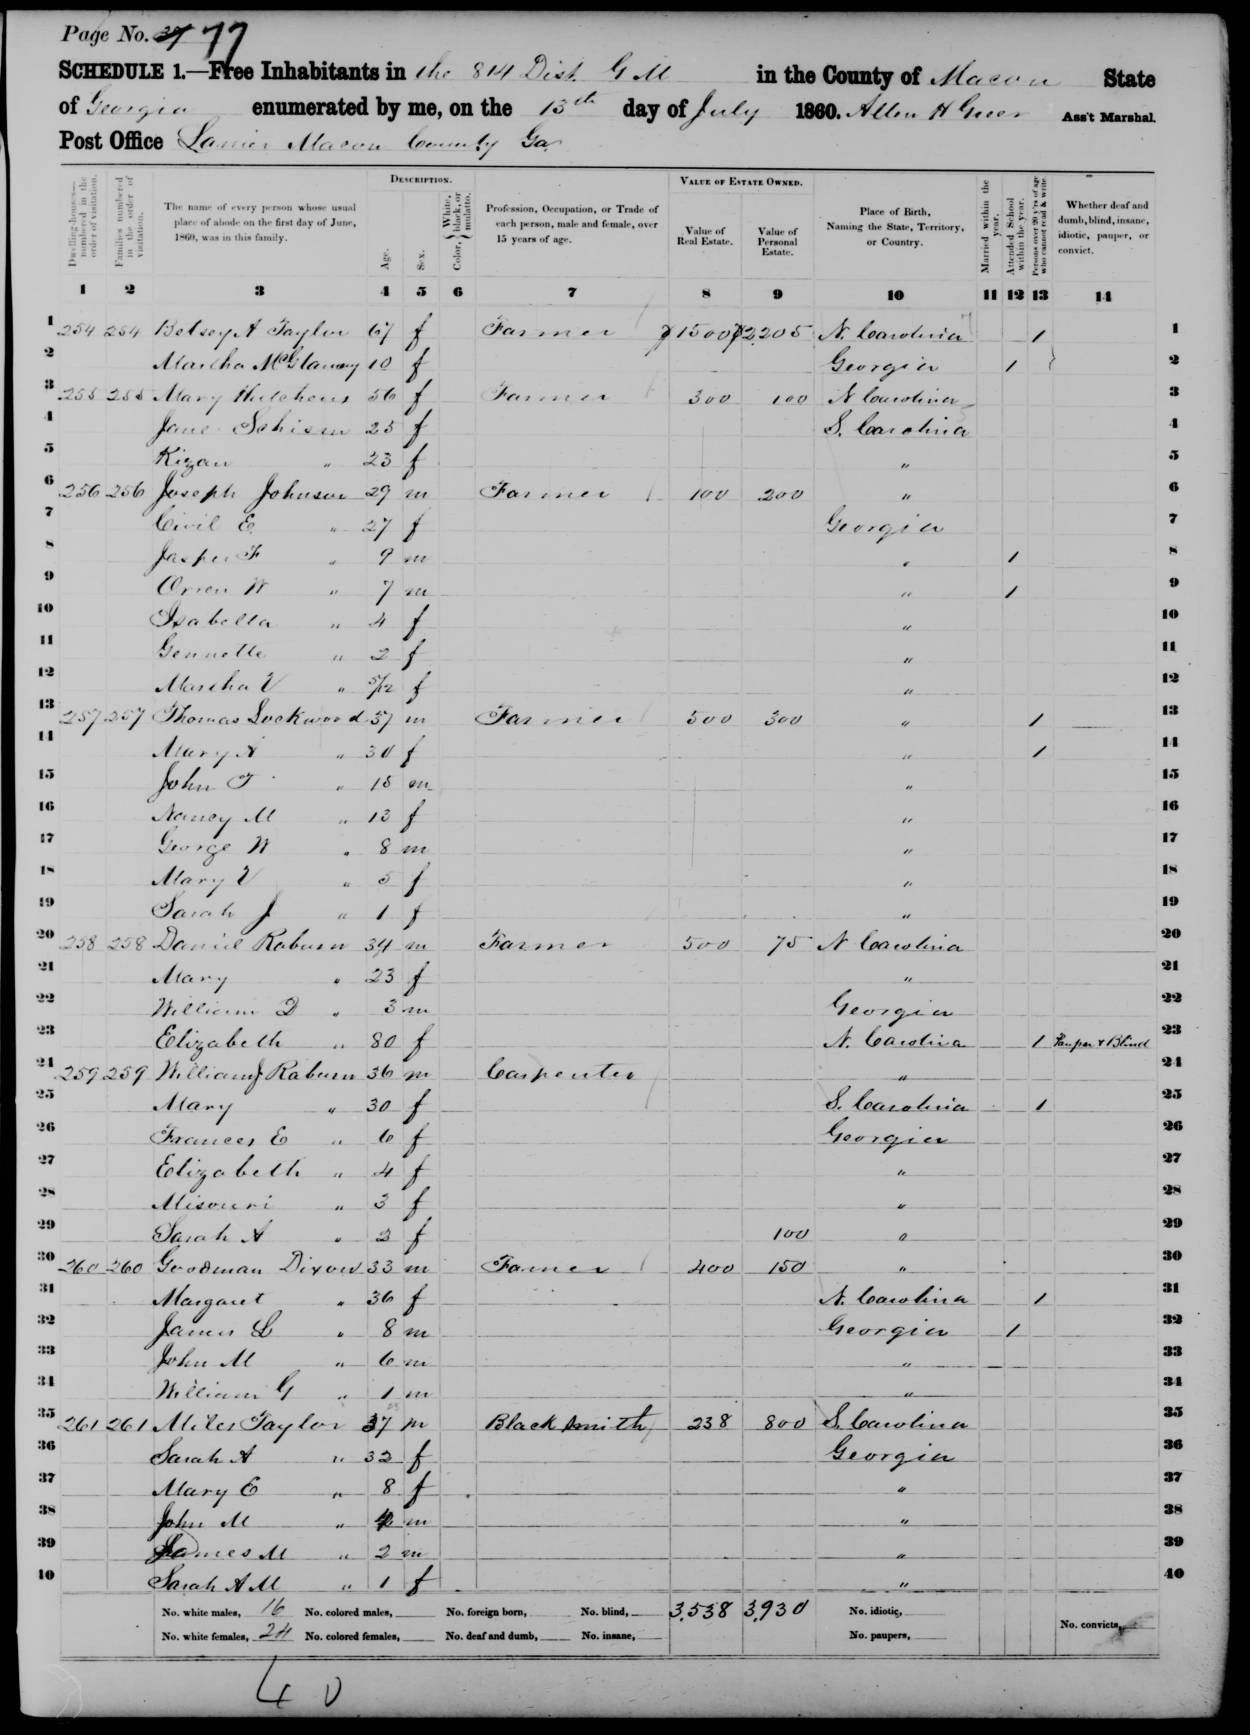 Page No. 39 77
SCHEDULE 1.—Free Inhabitants in the 814 Dist. G M in the County of Macon State
of Georgia enumerated by me, on the 13th day of July 1860. Allen H Greer Ass't Marshal.
Post Office Lanier Macon County Ga
DESCRIPTION. VALUE OF ESTATE OWNED.
Dwelling-houses—numbered in the order of visitation. Families numbered in the order of visitation. The name of every person whose usual place of abode on the first day of June, 1860, was in this family. Age. Sex. Color, White, black, or mulatto. Profession, Occupation, or Trade of each person, male and female, over 15 years of age. Value of Real Estate. Value of Personal Estate. Place of Birth, Naming the State, Territory, or Country. Married within the year. Attended School within the year. Persons over 20 y'rs of age who cannot read & write. Whether deaf and dumb, blind, insane, idiotic, pauper, or convict.
1 2 3 4 5 6 7 8 9 10 11 12 13 14
1 254 254 Betsey A Taylor 67 f Farmer 1500 2,205 N. Carolina 1 1
2 Martha McGlamry 10 f Georgia 1 2
3 255 255 Mary Hutchens 56 f Farmer 300 100 N Carolina 3
4 Jane Schism 25 f S. Carolina 4
5 Kizan " 23 f " 5
6 256 256 Joseph Johnson 29 m Farmer 100 200 " 6
7 Civil E " 27 f Georgia 7
8 Jasper F " 9 m " 1 8
9 Orren W " 7 m " 1 9
10 Isabella " 4 f " 10
11 Gennette " 2 f " 11
12 Martha V " 5/12 f " 12
13 257 257 Thomas Lockwood 37 m Farmer 500 300 " 1 13
14 Mary A " 30 f " 1 14
15 John T " 15 m " 15
16 Nancy M " 13 f " 16
17 George W " 8 m " 17
18 Mary V " 5 f " 18
19 Sarah J " 1 f " 19
20 258 258 Daniel Raburn 34 m Farmer 500 75 N Carolina 20
21 Mary " 23 f " 21
22 William D " 3 m Georgia 22
23 Elizabeth " 80 f N. Carolina 1 Pauper & Blind 23
24 259 259 William J Raburn 36 m Carpenter " 24
25 Mary " 30 f S. Carolina 1 25
26 Frances E " 6 f Georgia 26
27 Elizabeth " 4 f " 27
28 Misouri " 3 f " 28
29 Sarah A " 2 f 100 " 29
30 260 260 Goodman Dixon 33 m Farmer 400 150 " 30
31 Margaret " 36 f N. Carolina 1 31
32 James L " 8 m Georgia 1 32
33 John M " 6 m " 33
34 William G " 1 m " 34
35 261 261 Miles Taylor 37 m Black smith 238 800 S. Carolina 35
36 Sarah A " 32 f Georgia 36
37 Mary E " 8 f " 37
38 John M " 4 m " 38
39 James M " 2 m " 39
40 Sarah A M " 1 f " 40
No. white males, 16 No. colored males, No. foreign born, No. blind, 3,538 3,930 No. idiotic, No. convicts,
No. white females, 24 No. colored females, No. deaf and dumb, No. insane, No. paupers,
40